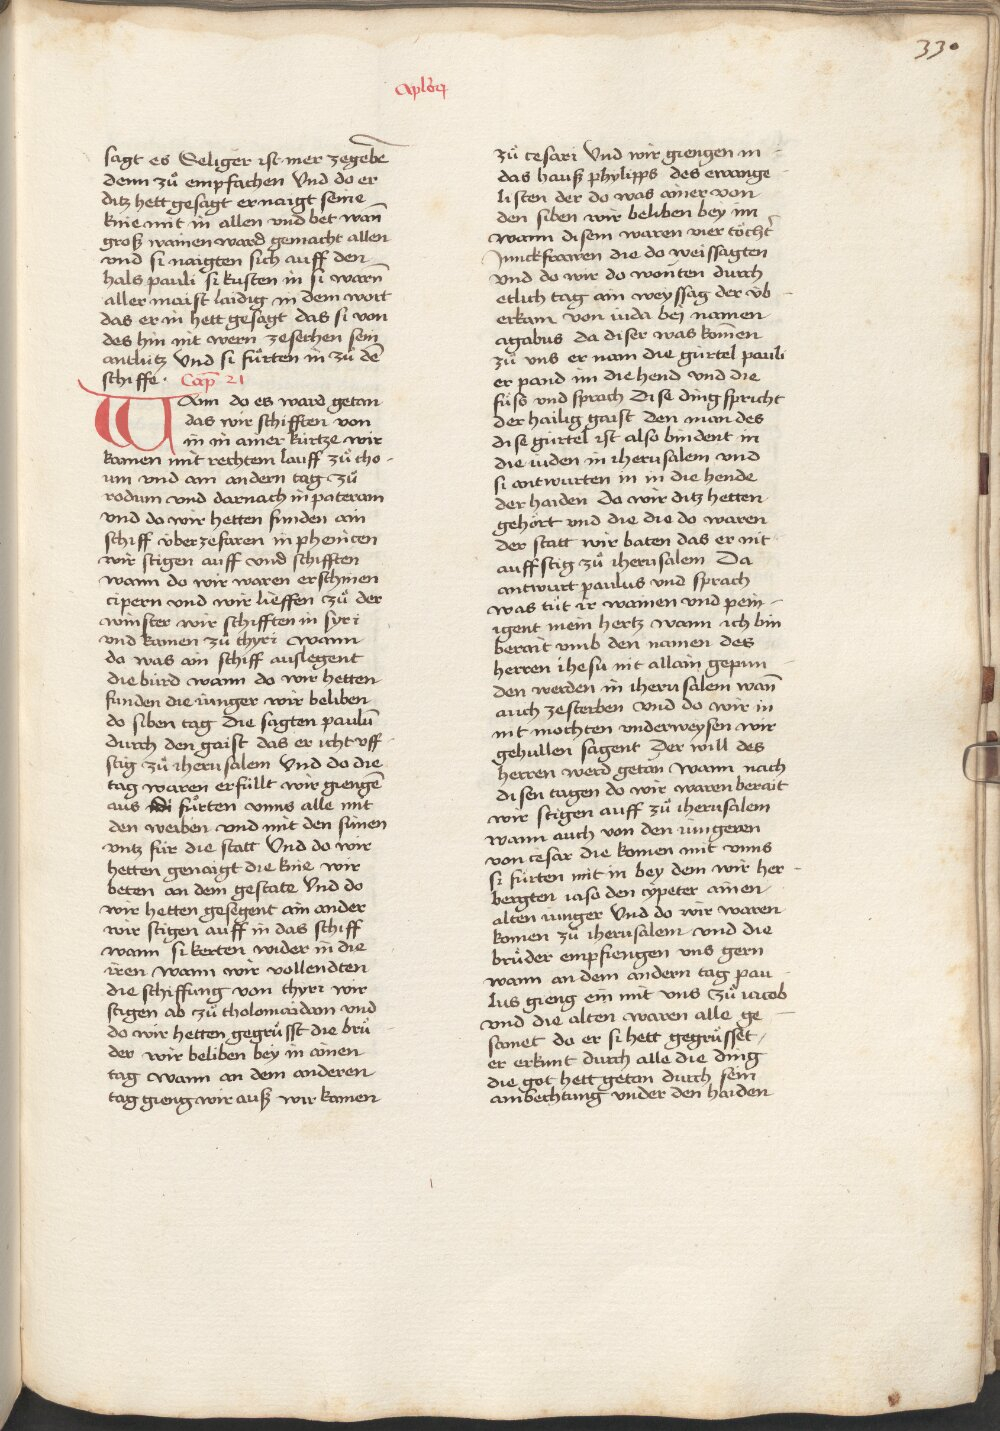 330
aplor̄
sagt es Seliger ist mer zegebē
denn zů empfachen Und do er
ditz hett gesagt er naigt seine
knie mit in allen und bet wañ
groß wainen ward gemacht allen
und si naigten sich auff den
hals pauli si kusten in si warn̄
aller maist laidig in dem wort
das er in hett gesagt das si von
des hin nit wern zesechen sein
antlutz Und si fůrten in zů dē
schiffe · Cap̄ 21
Wann do es ward getan
das wir schifften von
in in ainer kurtze wir
kamen mit rechtem lauff zů cho-
um und am andern tag zů
rodum und darnach in pateram
und do wir hetten funden ain
schiff überzefaren in phenicen
wir stigen auff und schifften
wann do wir waren erschinen
cipern und wir lieffen zů der
winster wir schifften in syri
und kamen zů thyri wann
do was ain schiff auslegent
die bürd wann do wir hetten
funden die iunger wir beliben
do siben tag die sagten paulū
durch den gaist das er icht uff-
stig zů iherusalem Und do die
tag waren erfüllt wir giengē
aus si fůrten unns alle mit
den weiben und mit den sünen
untz für die statt Und do wir
hetten genaigt die knie wir
beten an dem gestate Und do
wir hetten gesegent ain ander
wir stigen auff in das schiff
wann si kerten wider in die
iren wann wir vollendten
die schiffung von thyri wir
stigen ab zů tholomaidam und
do wir hetten gegrůsst die brů
der wir beliben bey in ainen
tag wann an dem anderen
tag gieng wir auß wir kamen
zů cesari Und wir giengen in
das hauß phylipps des ewange
listen der do was ainer von
den siben wir beliben bey im
wann disem waren vier töcht̃
Junckfrawen die do weissagten
und do wir do wonten durch
etlich tag ain weyssag der üb-
erkam von iuda bei namen
agabus da diser was kom̄en
zů uns er nam die gürtel pauli
er pand im die hend und die
füß und sprach Dise ding spricht
der hailig gaist den man des
dise gürtel ist also bindent in
die iuden in iherusalem und
si antwurten in in die hende
der haiden do wir ditz hetten
gehört und die die do waren
der statt wir baten das er nit
auff stig zů iherusalem Da
antwurt paulus und sprach
was tůt ir wainen und pein-
igent mein hertz wann ich bin
berait umb den namen des
herren ihesu nit allain gepun-
den werden in iherusalem wañ
auch zesterben und do wir in
nit mochten underweysen wir
gehullen sagent Der will des
herren werd getan wann nach
disen tagen do wir waren berait
wir stigen auff zů iherusalem
wann auch von den iungeren
von cesar die komen mit unns
si fürten mit in bey dem wir her-
bergten iaso den cypeter ainen
alten iunger Und do wir waren
komen zů iherusalem und die
brůder empfiengen uns gern
wann an dem andern tag pau
lus gieng ein mit uns zů iacob
und die alten waren alle ge-
samet do er si hett gegrůsset
er erkunt durch alle die ding
die got hett getan durch sein
ambechtung under den haiden